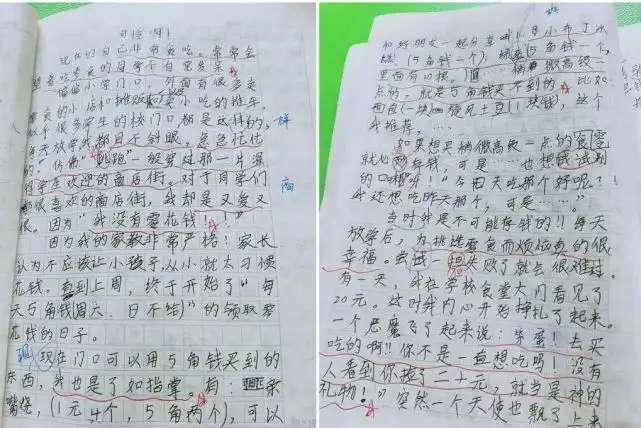 可怜啊!
现在的自己非常贪吃。常常会
偏偏小学门口,外面有很多卖
零食的小店和摊贩和卖小吃的推车。
似乎很多学生的校门口都是这样的,
样
每天放学我都目不斜眼,急急忙忙
的,“仿佛”“逃跑”一般穿过那一片深
得学生欢迎的商店街。对于同学们
都很喜欢的商店街,我却是又爱又
商
恨。因为“我没有零花钱!!”
因为我的家教非常严格!家长
认为不应该让小孩子,从小就太习惯
花钱。直到上周,终于开始了“每
天5角钱(周六、日不给)”的领取零
花钱的日子。
现
现在门口可以用5角钱买到的
东西,我也是了如指掌。有:
嘴烧,(1元4个,5角两个),可以
和好朋友一起分享哦!
小布丁冰
(5角钱一个),绿
(5角钱一个,
里面有10根。)
稍微高级一
点的,就是5角钱买不到的,比如:
面食(一块)旋风土豆(1块钱),这个
我推荐,……
如果想买稍微高级一点的食零
就必须存钱,可是……也想试试别
的口味呀!“今天吃那个好呢?!
我还想吃昨天那个,可是……”
当时我是不可能存钱的!!每天
放学后,为挑选零食而烦恼真的很
幸福。尝试一但失败了就会很难过。
有一天,我在学校食堂大门看见了
20元。这时我内心开始挣扎了起来。
一个恶魔飞了起来说:笨蛋!去买
吃的啊!!你不是一直想吃吗!没有
人看到你捡了二十元,就当是神的
礼物!”突然一个天使也飘了上来